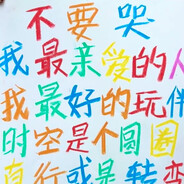 不要哭
我最亲爱的人
我最好的玩伴
时空是个圆圈
直行或是转变